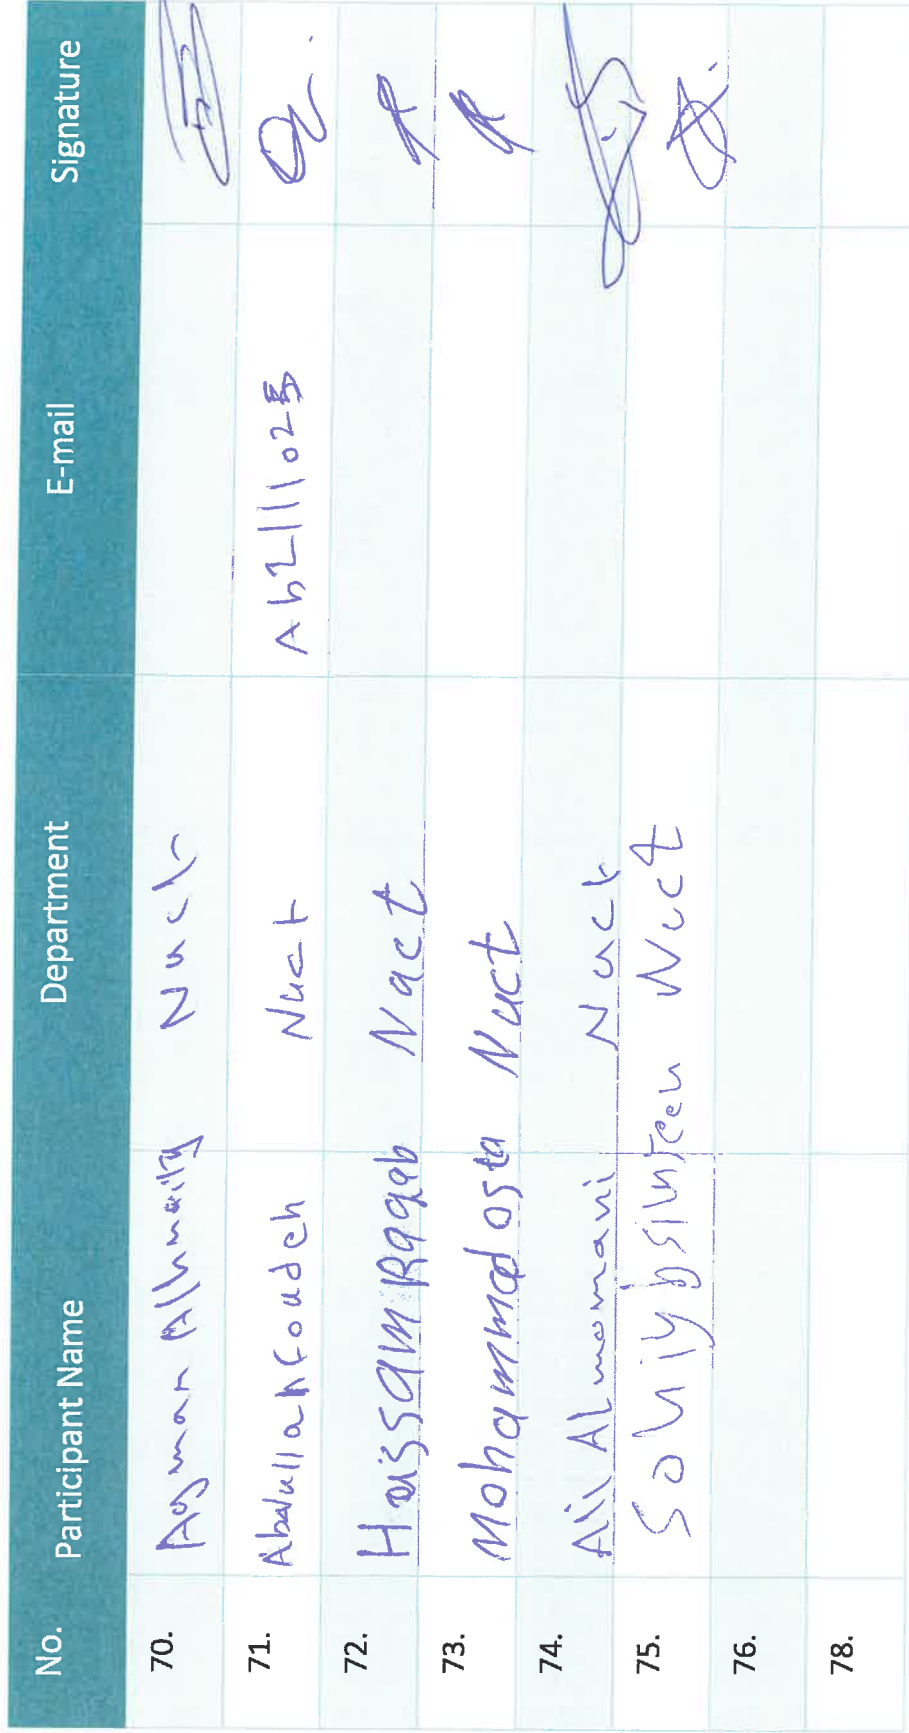 No. Participant Name Department E-mail Signature
70. Nuct
71. Abdullah foudeh Nuct Ab2111025
72. Haissam Ragab Nact
73. Mohammed osta Nuct
74. Ali ALmomani Nuct
75. Nuct
76.
78.